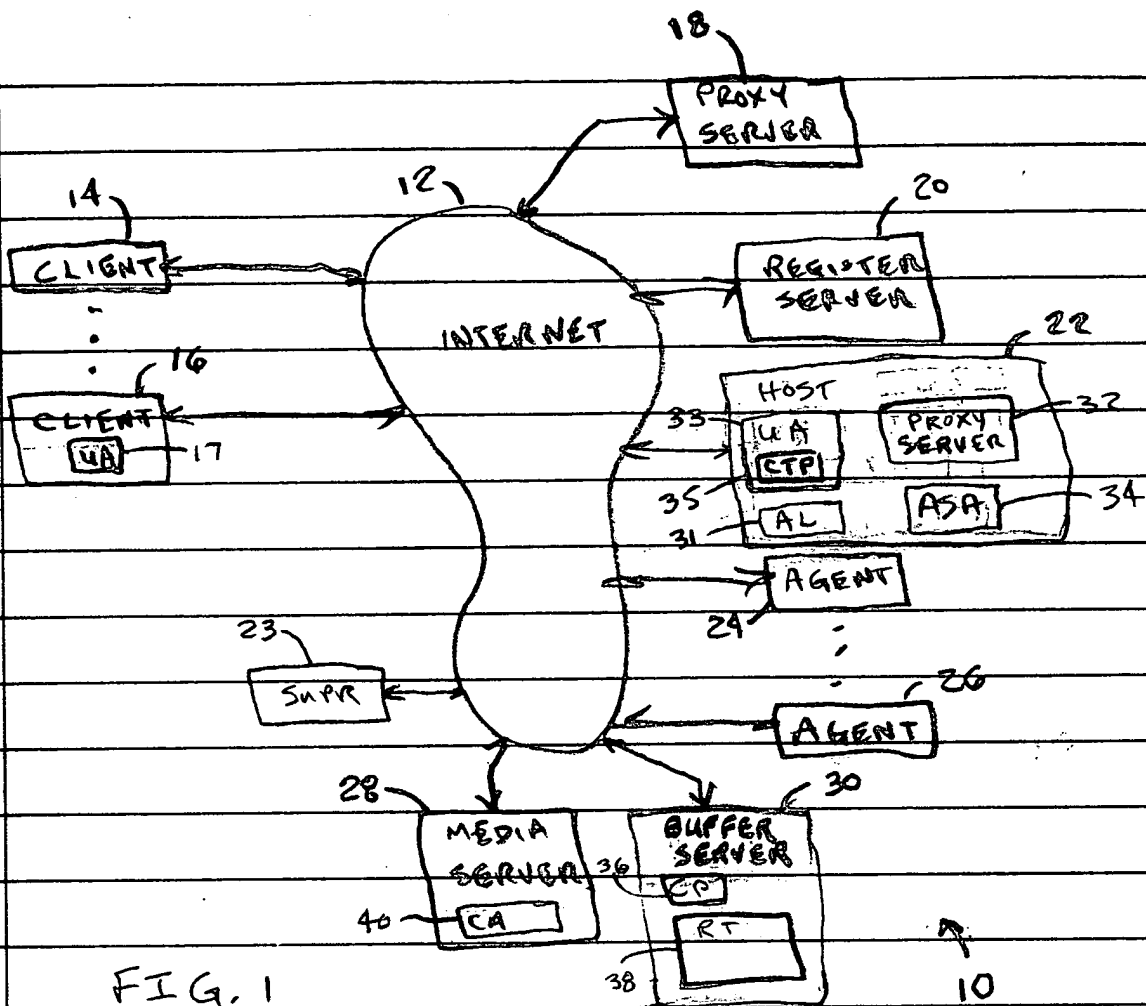 18
PROXY
SERVER
12
14
CLIENT
20
REGISTER
SERVER
INTERNET
16
CLIENT
UA
17
22
HOST
33
UA
CTP
35
PROXY
SERVER
32
AL
31
ASA
34
AGENT
24
23
SUPR
26
AGENT
28
MEDIA
SERVER
CA
40
30
BUFFER
SERVER
36
CP
RT
38
10
FIG. 1